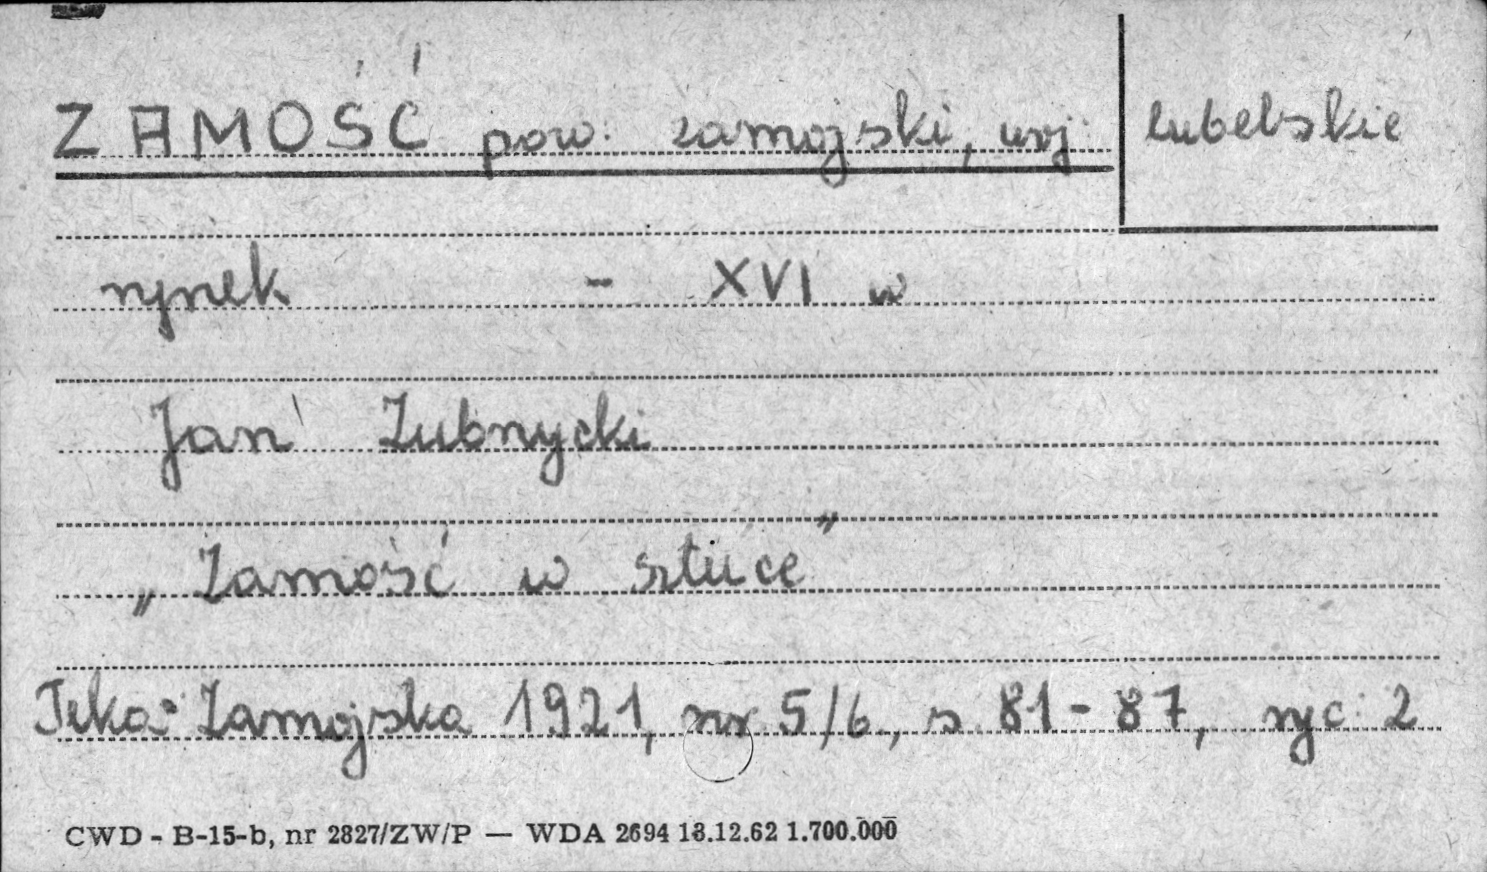 ZAMOŚĆ pow. zamojski, woj. lubelskie
rynek - XVI w
Jan Zubnycki
„Zamość w sztuce”
Teka Zamojska 1921, nr 5/6, s 81-87, ryc 2
CWD - B-15-b, nr 2827/ZW/P — WDA 2694 13.12.62 1.700.000